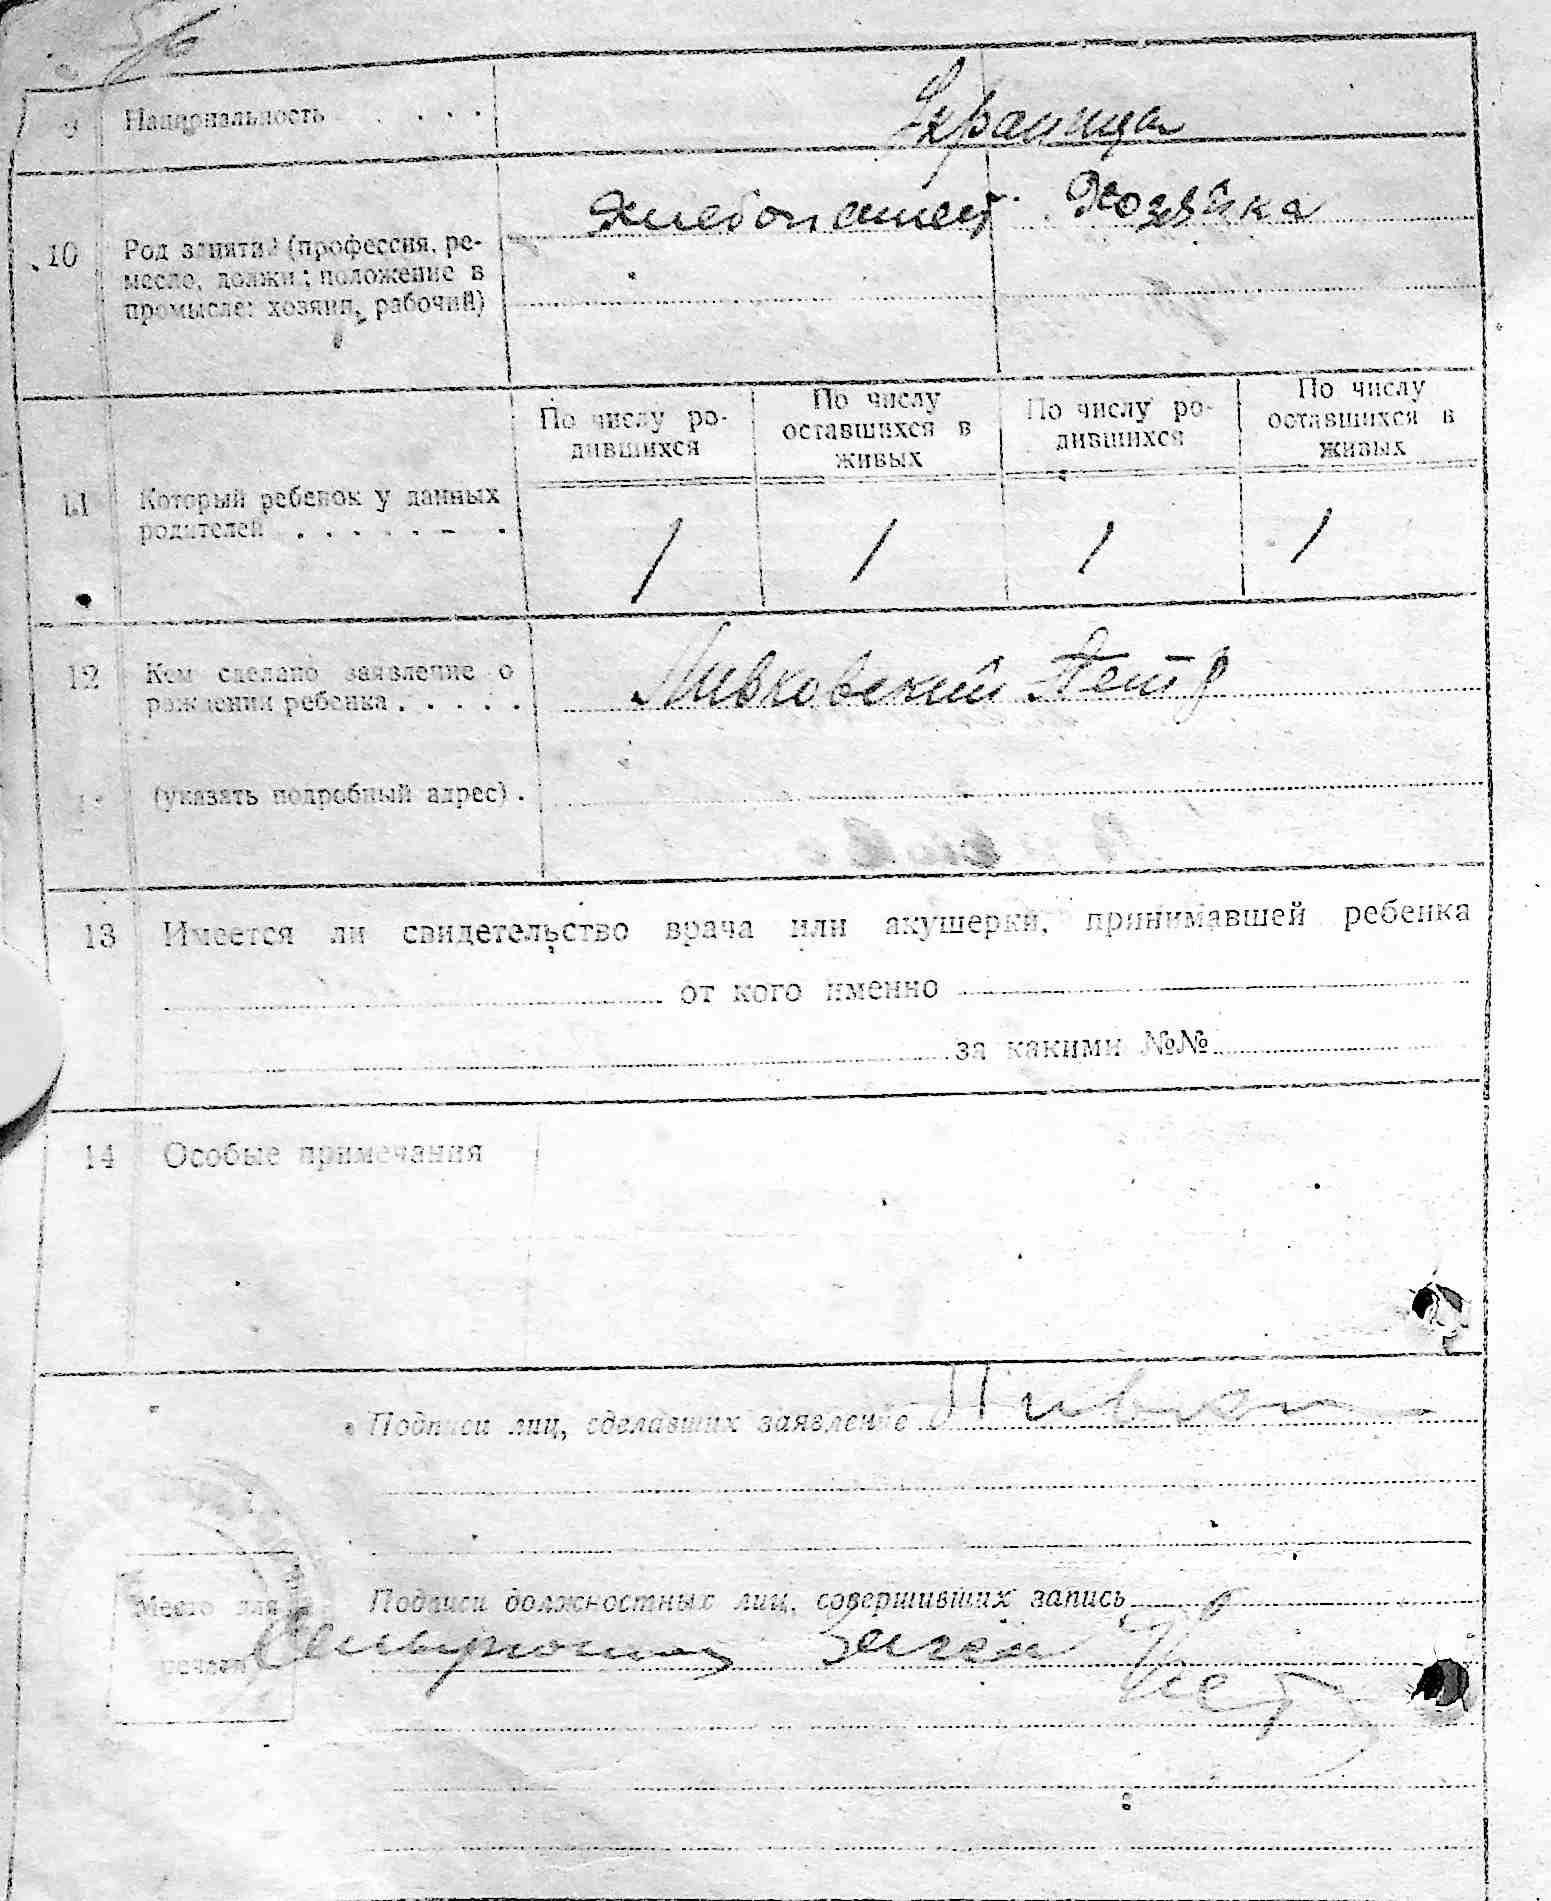 9 Национальность . . . . . Украинца
10 Род занятий (профессия, ре-
месло, должн.; положение в
промысле: хозяин, рабочий)
Хлебопашест. Хозяйка
По числу ро-
дившихся
По числу
оставшихся в
живых
По числу ро-
дившихся
По числу
оставшихся в
живых
11 Который ребенок у данных
родителей . . . . . . .
1 1 1 1
12 Кем сделано заявление о
рождении ребенка . . . . .
Пивковский Петр
(указать подробный адрес) .
13 Имеется ли свидетельство врача или акушерки, принимавшей ребенка
от кого именно
за какими №№
14 Особые примечания
Подписи лиц, сделавших заявление
Место для
печати
Подписи должностных лиц, совершивших запись